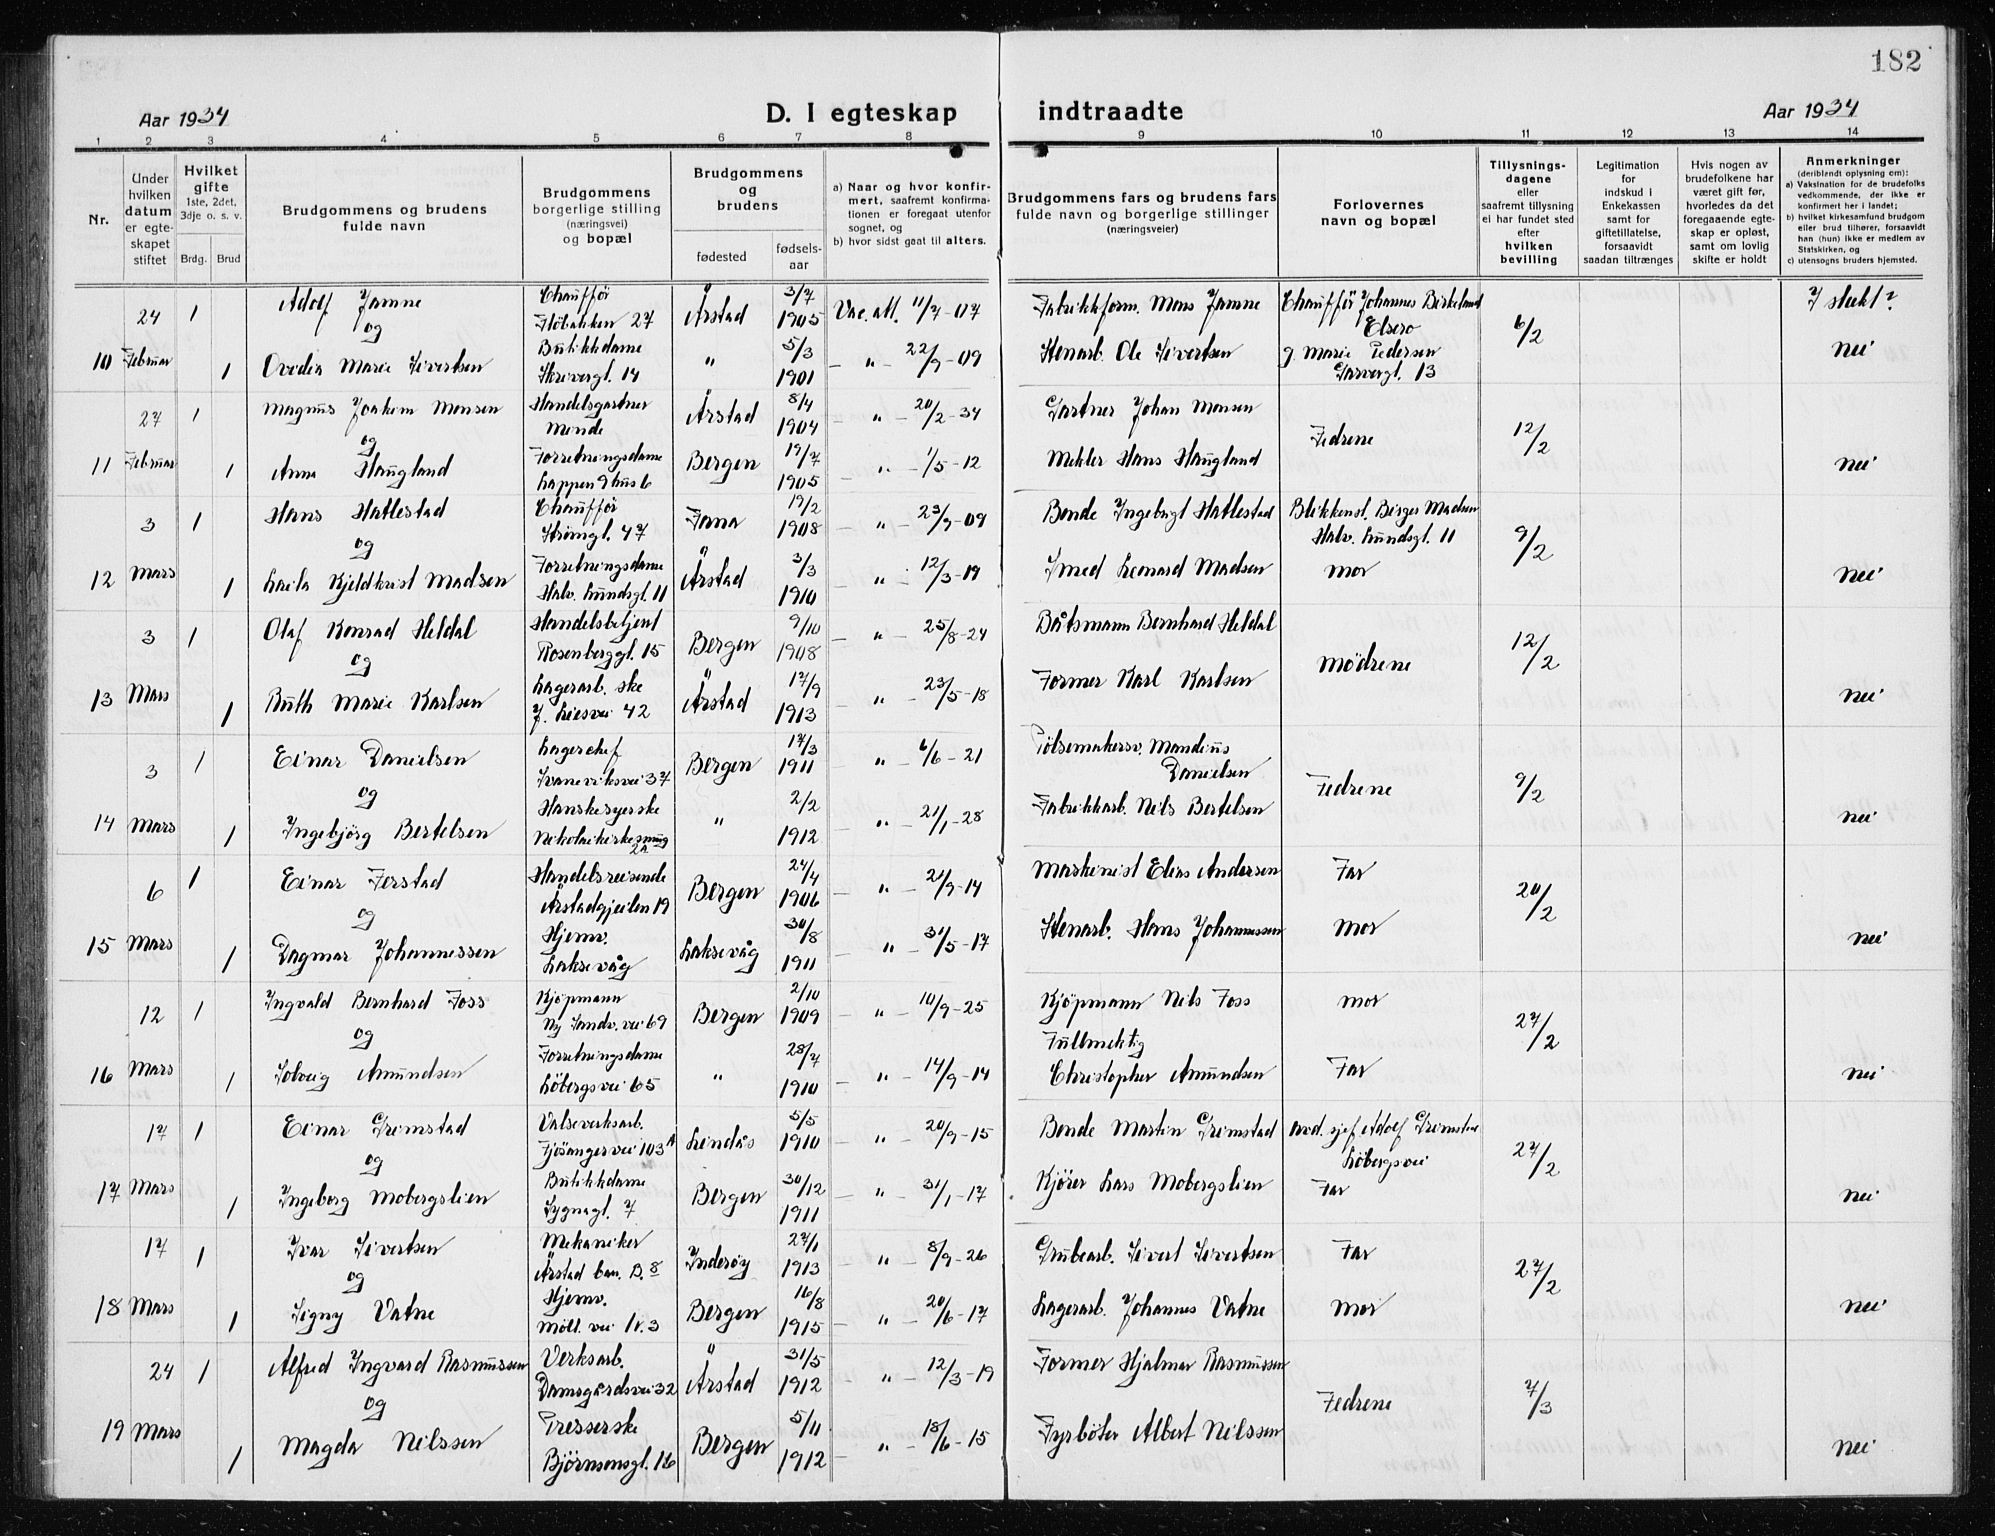 182
Aar 1934
D. I egteskap indtraadte
Aar 1934
1 2 3 4 5 6 7 8 9 10 11 12 13 14
Nr.
Under hvilken datum er egte-skapet stiftet
Hvilket gifte
1ste, 2det, 3dje o. s. v.
Brdg. Brud
Brudgommens og brudens
fulde navn
Brudgommens
borgerlige stilling
(næringsvei)
og bopæl
Brudgommens
og
brudens
fødested
fødsels-
aar
a) Naar og hvor konfir-
mert, saafremt konfirma-
tionen er foregaat utenfor
sognet, og
b) hvor sidst gaat til alters.
Brudgommens fars og brudens fars
fulde navn og borgerlige stillinger
(næringsveier)
Forlovernes
navn og bopæl
Tillysnings-
dagene
eller
saafremt tillysning
ei har fundet sted
efter
hvilken
bevilling
Legitimation
for
indskud i
Enkekassen
samt for
giftetillatelse,
forsaavidt
saadan tiltrænges
Hvis nogen av
brudefolkene har
været gift før,
hvorledes da det
foregaaende egte-
skap er opløst,
samt om lovlig
skifte er holdt
Anmerkninger
(deriblandt oplysning om):
a) Vaksination for de brudefolks
vedkommende, der ikke er
konfirmert her i landet;
b) hvilket kirkesamfund brudgom
eller brud tilhører, forsaavidt
han (hun) ikke er medlem av
Statskirken, og
c) utensogns bruders hjemsted.
10 24 Februar 1 Adolf Jamne Chauffør Fløbakken 27 Årstad 3/7 1905 Vac. att. 11/7-07 Fabrikkform. Mons Jamne Chauffør Johannes Birkeland Elsero 6/2 I slekt?
og
1 Ovedia Marie Sivertsen Butikkdame Skrivergt. 14 " 5/3 1901 - " - 22/9-09 Stenarb. Ole Sivertsen g. Marie Pedersen Garvergt. 13 nei
11 27 Februar 1 Magnus Joakim Monsen Handelsgartner Minde Årstad 8/4 1904 " - 20/2-34 Gartner Johan Monsen Fedrene 12/2
og
1 Anna Haugland Forretningsdame Lappen 9 hus 6 Bergen 19/7 1905 " - 1/5-12 Mekler Hans Haugland nei
12 3 Mars 1 Hans Hatlestad Chauffør Strømgt. 47 Fana 19/2 1908 - " - 23/9-09 Bonde Ingebrigt Hatlestad Blikkensl. Birger Madsen Halv. Lundsgt. 11 9/2
og
1 Laila Kjeldkrist Madsen Forretningsdame Halv. Lundsgt. 11 Årstad 3/3 1910 " - 12/3-19 Smed Leonard Madsen mor nei
13 3 Mars 1 Olaf Konrad Heldal Handelsbetjent Rosenberggt. 15 Bergen 9/10 1908 - " - 25/8-24 Båtsmann Bernhard Heldal Mødrene 12/2
og
1 Ruth Marie Karlsen Lagerarb.ske J. Liesvei 42 Årstad 17/9 1913 " - 23/5-18 Former Karl Karlsen nei
14 3 Mars 1 Einar Danielsen Lagerchef Svaneviksvei 37 Bergen 17/3 1911 " - 6/6-21 Pølsemakersv. Mandius Danielsen Fedrene 9/2
og
1 Ingebjørg Bertelsen Hanskesyerske Nikolaikirkesmug 2A " 2/2 1912 " - 21/1-28 Fabrikkarb. Nils Bertelsen nei
15 6 Mars 1 Einar Ferstad Handelsreisende Årstadgjeilen 19 Bergen 24/4 1906 - " - 21/9-14 Maskinist Elias Andersen Far 20/2
og
1 Dagmar Johannessen Hjemv. Laksevåg Laksevåg 30/8 1911 " - 31/5-17 Stenarb. Hans Johannessen mor nei
16 12 Mars 1 Ingvald Bernhard Foss Kjøpmann Ny Sandv. vei 69 Bergen 2/10 1909 - " - 10/9-25 Kjøpmann Nils Foss mor 27/2
og
1 Solveig Amundsen Forretningsdame Løbergsvei 65 " 28/7 1910 " - 14/9-14 Fullmektig Christopher Amundsen Far nei
17 17 Mars 1 Einar Grimstad Valseverksarb. Fjøsangervei 103A Lindås 5/5 1910 " - 20/9-15 Bonde Martin Grimstad avd. sjef Adolf Grimstad Løbergsvei 27/2
og
1 Ingeborg Mobergslien Butikkdame Sygnagt. 7 Bergen 30/12 1911 - " - 31/1-17 Kjører Lars Mobergslien Far nei
18 17 Mars 1 Ivar Sivertsen Mekaniker Årstad bar. B. 8 Inderøy 27/1 1913 " - 8/9-26 Grubearb. Sivert Sivertsen Far 27/2
og
1 Signy Vatne Hjemv. Møll. vei 1v. 3 Bergen 16/8 1915 " - 20/6-17 Lagerarb. Johannes Vatne Mor nei
19 24 Mars 1 Alfred Ingvard Rasmussen Verksarb. Damsgårdsvei 32 Årstad 31/5 1912 " - 12/3-19 Former Hjalmar Rasmussen Fedrene 7/3
og
1 Magda Nilssen Presserske Bjørnsonsgt. 16 Bergen 5/11 1912 " - 18/6-15 Fyrbøter Albert Nilssen nei